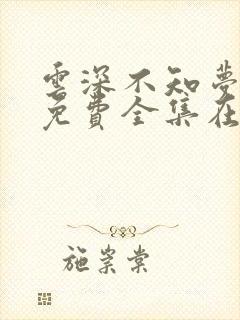 雲深不知夢
免費全集在
施崇棠